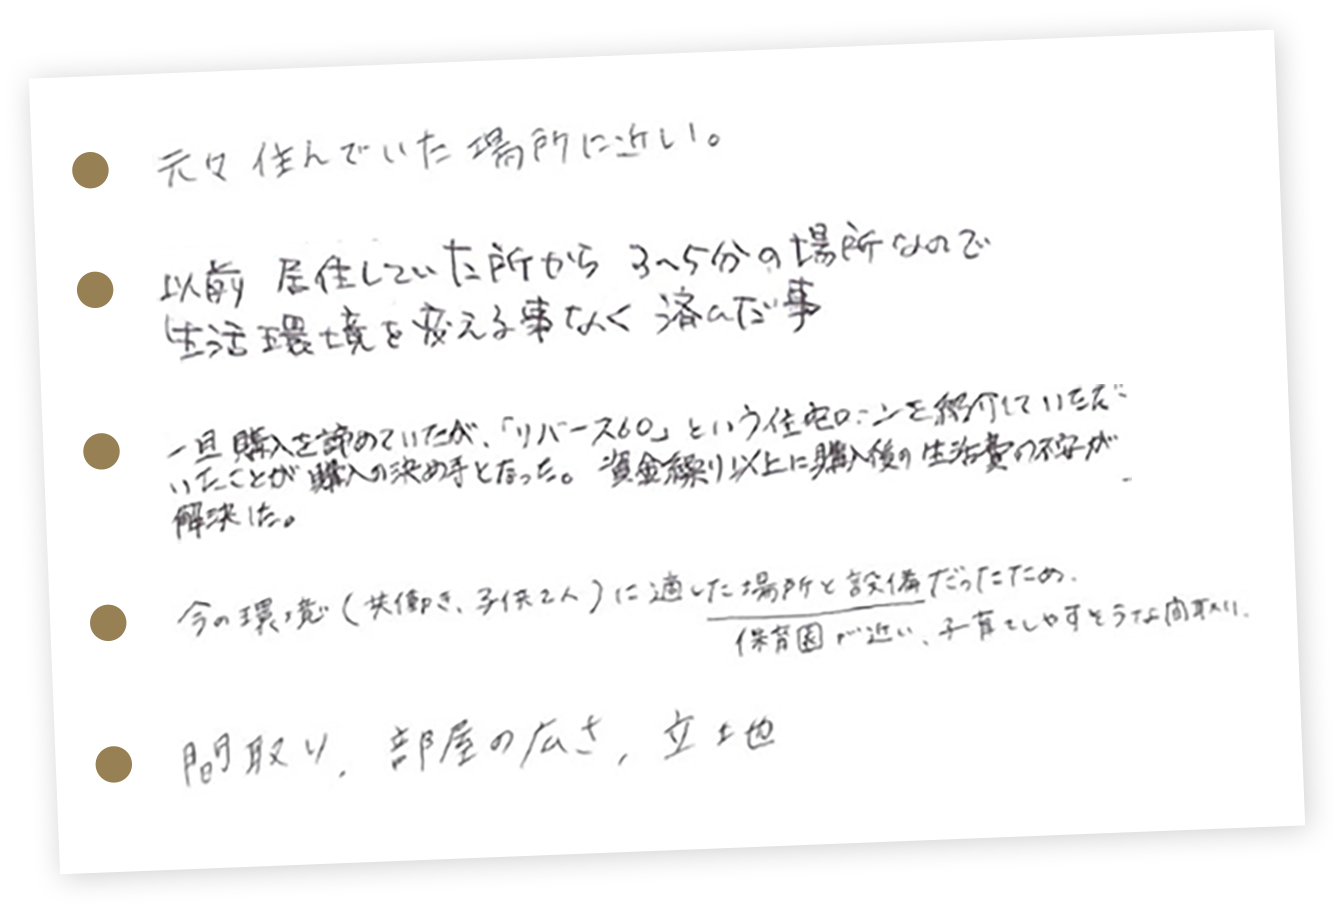 元々住んでいた場所に近い。
以前居住していた所から3〜5分の場所なので
生活環境を変える事なく済んだ事
一旦購入を諦めていたが、「リバース60」という住宅ローンを紹介していただ
いたことが購入の決め手となった。資金繰り以上に購入後の生活費の不安が
解決した。
今の環境(共働き、子供2人)に適した場所と設備だったため.
保育園が近い、子育てしやすそうな間取り.
間取り、部屋の広さ、立地